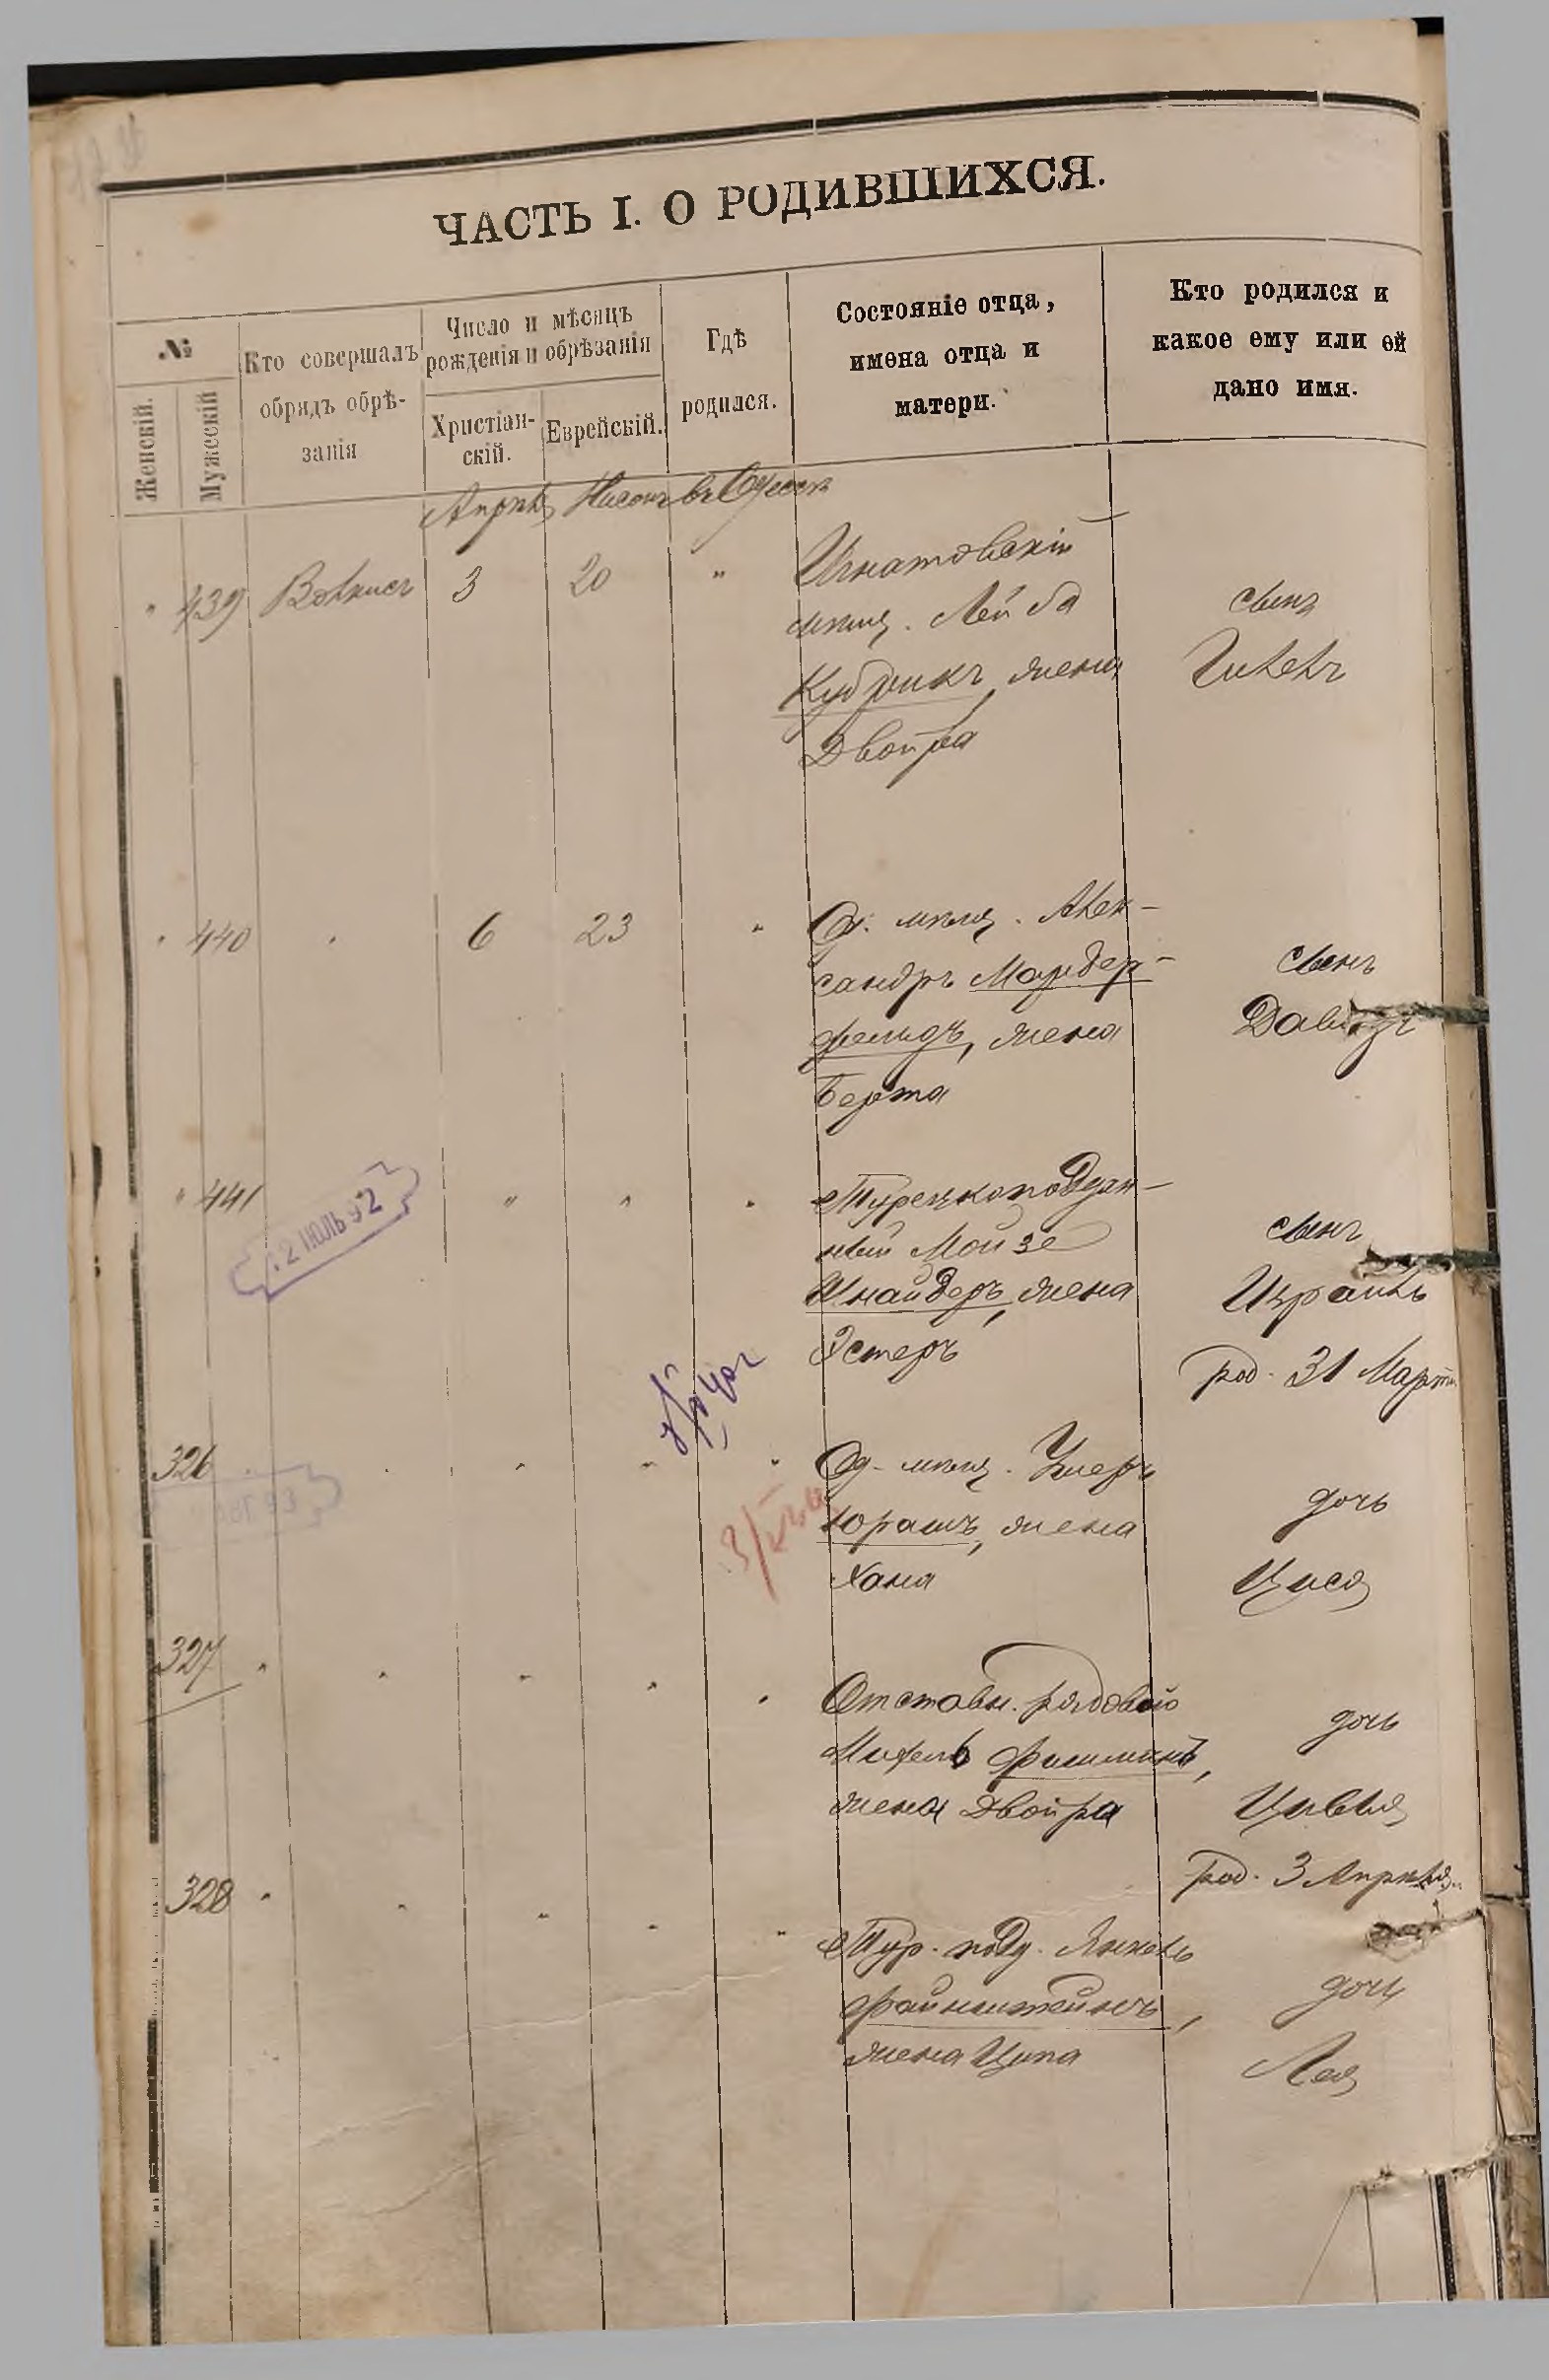 ЧАСТЬ I. О РОДИВШИХСЯ.
№
Женскій.
Мужескій
Кто совершалъ
обрядъ обрѣ-
занія
Число и мѣсяцъ
рожденія и обрѣзанія
Христіан-
скій.
Еврейскій.
Гдѣ
родился.
Состояніе отца,
имена отца и
матери.
Кто родился и
какое ему или ей
дано имя.
Апрѣль Нисонъ въ Одессѣ
" 439 3 20 "
Игнатовскій
мѣщ. Лейба
Кубрикъ, жена
Двойра
сынъ
440 6 23 "
Од. мѣщ. Алек-
сандръ Мардер-
фельдъ, жена
Берта
сынъ
Давидъ
" 441 " " "
12 ІЮЛЬ 92
Турецкоподдан-
ный Мойзе
Шнайдеръ, жена
Эстеръ
сынъ
Израиль
род. 31 Марта
326 " " "
Од. мѣщ. Ушеръ
Юрашъ, жена
Хана
дочь
Цися
327 " " " " "
Отставн. рядовой
Михель Фишманъ,
жена Двойра
дочь
Цивья
род. 3 Апрѣля
328 " " " " "
Тур. подд. Янкель
Файнштейнъ,
жена Ципа
дочь
Лея